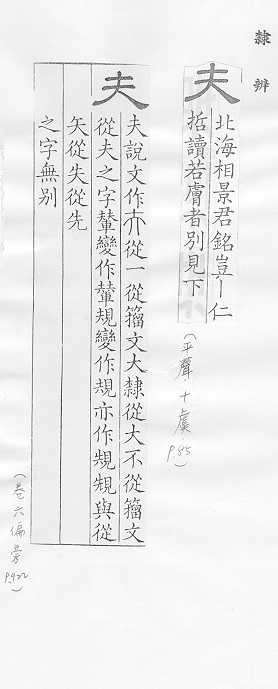 隸辨
夫
北海相景君銘豈丨仁
哲讀若膚者別見下
(平聲十虞
P.85)
夫
夫說文作亣從一從籀文大隸從大不從籀文
從夫之字輦變作輦規變作規亦作䂓䂓與從
矢從失從先
之字無別
(卷六偏旁
P.922)